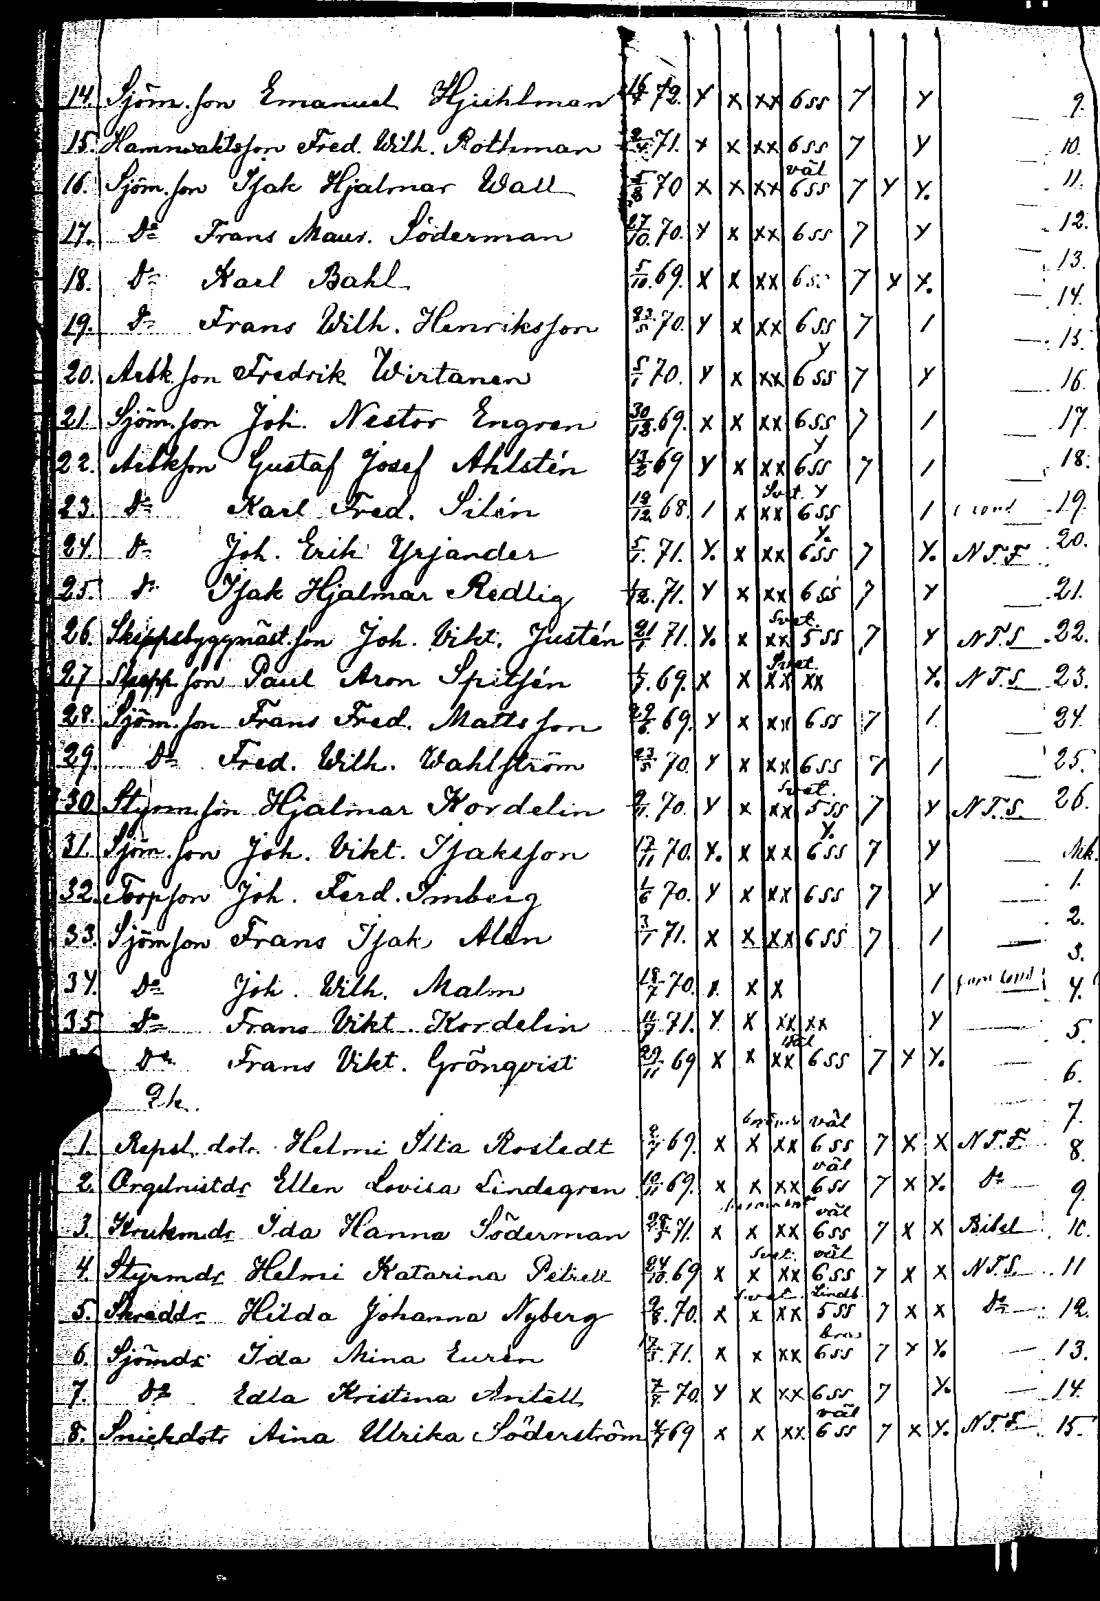 14. Sjöm. son Emanuel Hjuhlman 72. x x xx 6 ss 7 x 9.
15. Hamnvaktsson Fred. Wilh. Rothman 71. x x xx 6 ss 7 x 10.
väl
16. Sjöm. son Isak Hjalmar Wall 5/8 70 x x xx 6 ss 7 x x. 11.
17. Do Frans Maur. Söderman 27/10. 70. x x xx 6 ss 7 x 12.
18. Do Karl Bahl 5/10. 69. x x xx 6 ss 7 x x. 13.
14.
19. Do Frans Wilh. Henriksson 23/5 70. x x xx 6 ss 7 / 15.
20. Arbk. son Fredrik Wirtanen 5/1 70. x x xx 6 ss 7 x 16.
21. Sjöm. son Joh. Nestor Engren 30/12. 69. x x xx 6 ss 7 / 17.
22. Arbkson Gustaf Josef Ahlstén 69 x x xx 6 ss 7 / 18.
Svet. x
23. Do Karl Fred. Silén 12. 68. / x xx 6 ss / 19.
24. Do Joh. Erik Yrjander 5/1. 71. x. x xx 6 ss 7 x. N.T.F. 20.
25. Do Isak Hjalmar Redlig 71. x x xx 6 ss 7 x 21.
Svet.
26. Skeppsbyggmäst. son Joh. Vikt. Justén 21/1 71. x. x xx 5 ss 7 x N.T.S. 22.
Svet.
27 Skepp. son Paul Aron Spitsén 69. x x xx xx x. N.T.S. 23.
28. Sjöm. son Frans Fred. Mattsson 69. x x xx 6 ss 7 / 24.
29. Do Fred. Wilh. Wahlström 23/5 70. x x xx 6 ss 7 / 25.
Svet.
30. Styrm. son Hjalmar Kordelin 9/11. 70. x x xx 5 ss 7 x N.T.S. 26.
31. Sjöm. son Joh. Vikt. Isaksson 17/11 70. x. x xx 6 ss 7 x
32. Torpson Joh. Ferd. Imberg 1/6 70. x x xx 6 ss 7 x 1.
2.
33. Sjömson Frans Isak Alén 3/1 71. x x xx 6 ss 7 / 3.
34. Do Joh. Wilh. Malm 18/7 70. x. x x / 4.
35 Do Frans Vikt. Kordelin 71. x x xx xx x 5.
väl
Do Frans Vikt. Grönqvist 29/11 69 x x xx 6 ss 7 x x. 6.
Qk.
7.
väl
1. Repsl. dotr. Helmi Ilta Rostedt 69. x x xx 6 ss 7 x x N.T.F. 8.
väl
2. Orgelnistdr Ellen Lovisa Lindegren 69. x x xx 6 ss 7 x x. Do 9.
väl
3. Krukm.dr Ida Hanna Söderman 71. x x xx 6 ss 7 x x Bibel 10.
Svet. väl
4. Styrmdr Helmi Katarina Petrell 24/10. 69 x x xx 6 ss 7 x x N.T.S. 11
Svet. Lindb.
5. Skräddr Hilda Johanna Nyberg 9/8. 70. x x xx 5 ss 7 x x Do 12.
bra
6. Sjömdr Ida Mina Eurén 71. x x xx 6 ss 7 x x. 13.
7. Do Edla Kristina Antell 70. x x xx 6 ss 7 x. 14.
väl
8. Snickdotr Aina Ulrika Söderström 69 x x xx 6 ss 7 x x. N.T.F. 15.